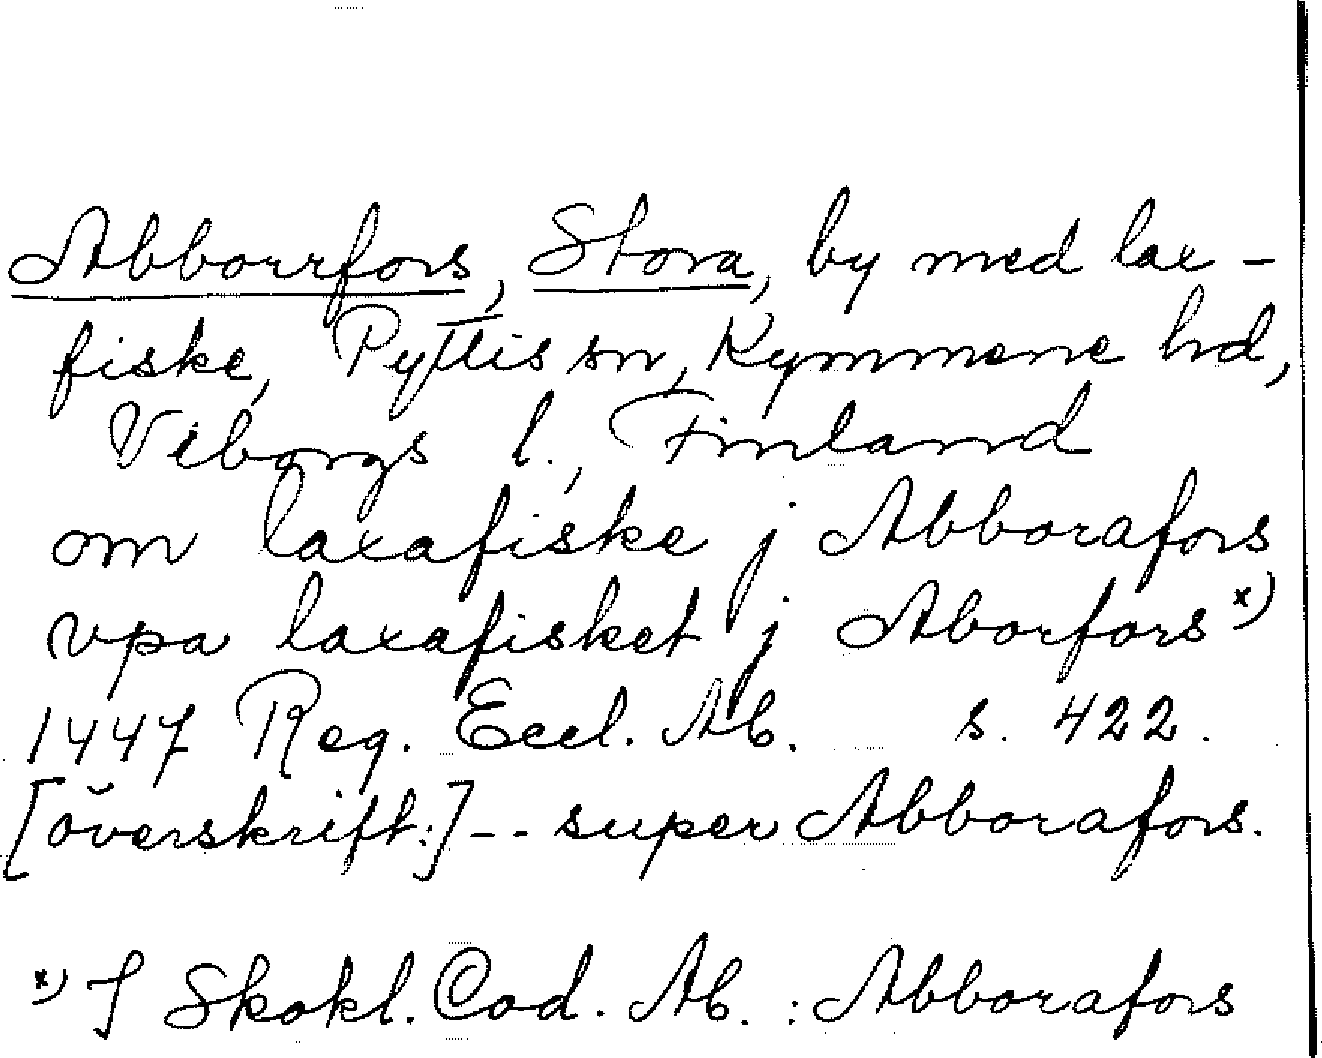 Abborrfors, Stora, by med lax-
fiske, Pyttis sn, Kymmene hd,
Viborgs l., Finland
om laxafiske j Abborafors
vpa laxafisket j Aborfors x)
1447 Reg. Eccl. Ab. s. 422.
[överskrift:] - - super Abborafors.
x) I Skokl. Cod. Ab. : Abborafors